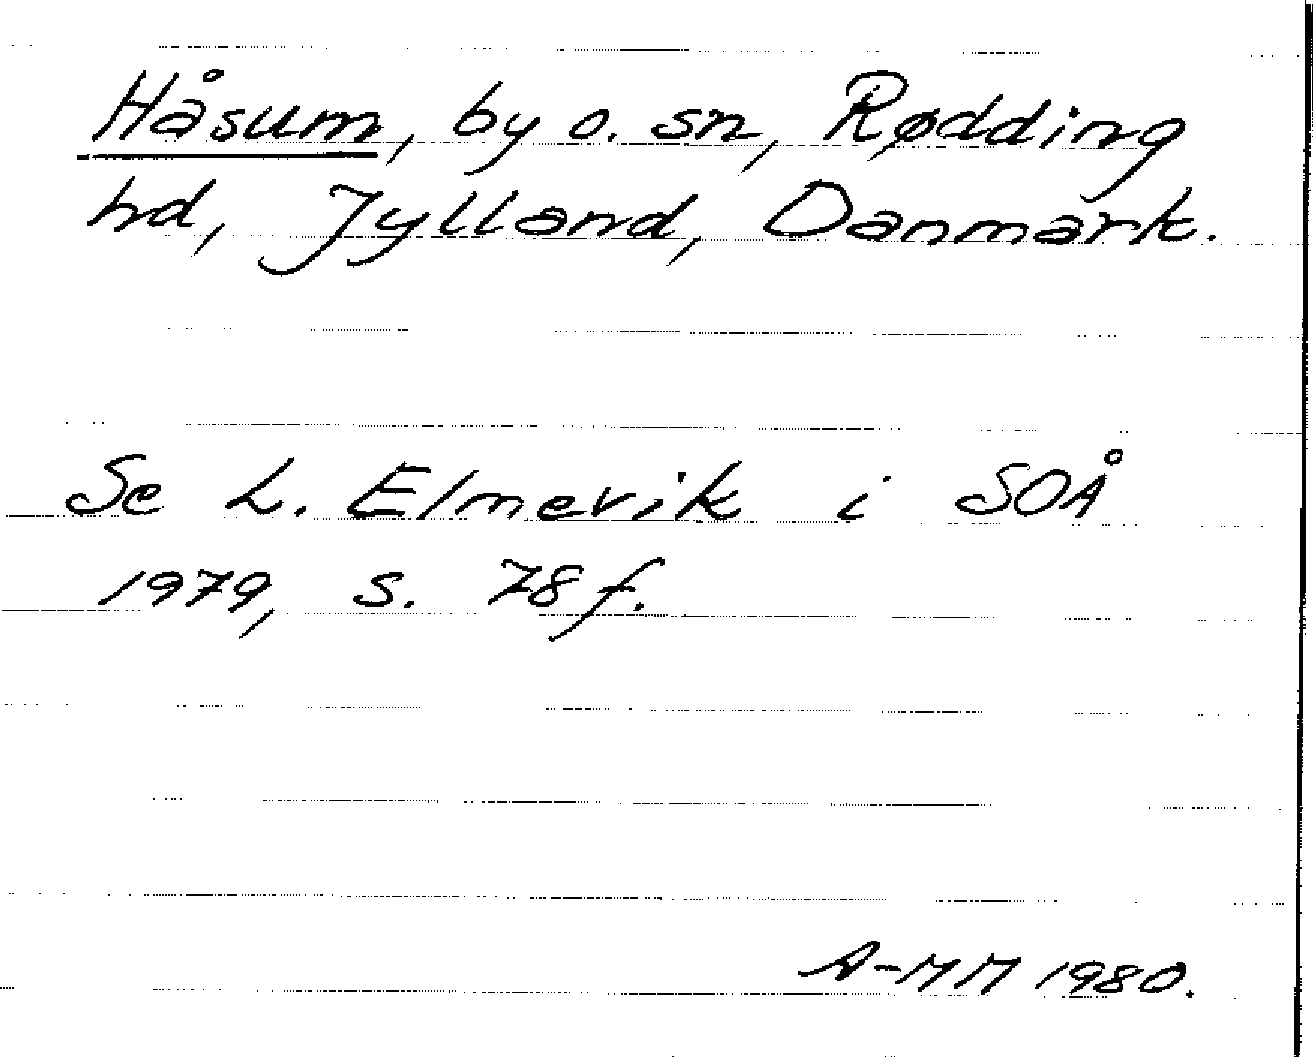 Håsum, by o. sn, Rødding
hd, Jylland, Danmark.
Se L. Elmevik i SOÅ
1979, s. 78 f.
A-MM 1980.